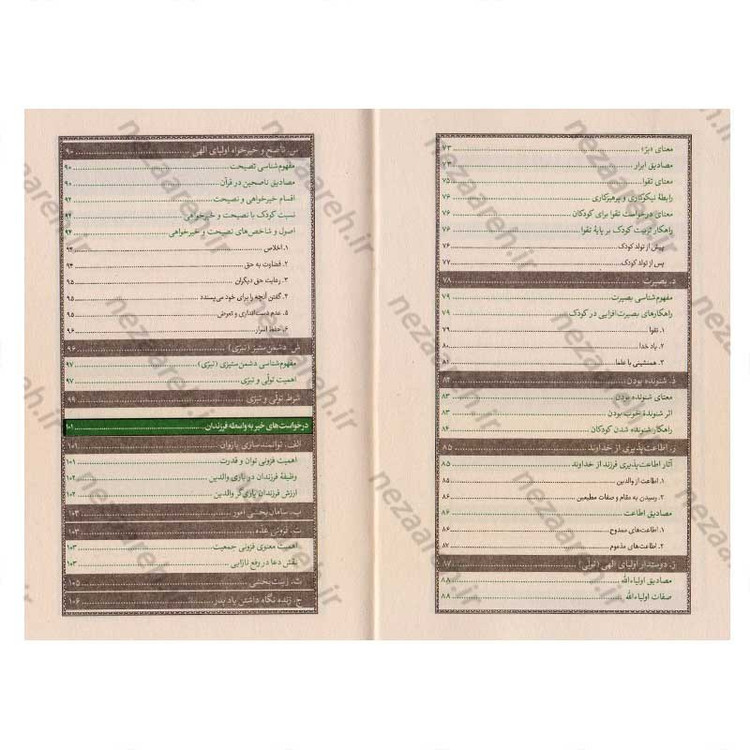 معنای «بِرّ» ۷۳
مصادیق ابرار ۷۳
معنای تقوا ۷۵
رابطهٔ نیکوکاری و پرهیزکاری ۷۶
معنای درخواست تقوا برای کودکان ۷۶
راهکار تربیت کودک بر پایهٔ تقوا ۷۶
پیش از تولد کودک ۷۶
پس از تولد کودک ۷۷
د. بصیرت ۷۸
مفهوم‌شناسی بصیرت ۷۹
راهکارهای بصیرت‌افزایی در کودک ۷۹
۱. تقوا ۷۹
۲. یاد خدا ۸۰
۳. همنشینی با علما ۸۰
ذ. شنونده بودن ۸۲
معنای شنونده بودن ۸۳
اثر شنوندهٔ خوب بودن ۸۳
راهکار شنونده شدن کودکان ۸۴
ر. اطاعت‌پذیری از خداوند ۸۵
آثار اطاعت‌پذیری فرزند از خداوند ۸۵
۱. اطاعت از والدین ۸۵
۲. رسیدن به مقام و صفات مطیعین ۸۶
مصادیق اطاعت ۸۶
۱. اطاعت‌های ممدوح ۸۶
۲. اطاعت‌های مذموم ۸۷
ز. دوستدار اولیای الهی (تولّی) ۸۷
مصادیق اولیاءالله ۸۸
صفات اولیاءالله ۸۸
س. ناصح و خیرخواه اولیای الهی ۹۰
مفهوم‌شناسی نصیحت ۹۰
مصادیق ناصحین در قرآن ۹۰
اقسام خیرخواهی و نصیحت ۹۲
نسبت کودک با نصیحت و خیرخواهی ۹۲
اصول و شاخص‌های نصیحت و خیرخواهی ۹۴
۱. اخلاص ۹۴
۲. قضاوت به حق ۹۴
۳. رعایت حق دیگران ۹۵
۴. گفتن آنچه را برای خود می‌پسندد ۹۵
۵. عدم دست‌اندازی و تعرض ۹۵
۶. حفظ اسرار ۹۶
ش. دشمن ستیز (تبرّی) ۹۶
مفهوم‌شناسی دشمن‌ستیزی (تبرّی) ۹۷
اهمیت تولّی و تبرّی ۹۷
شرط تولّی و تبرّی ۹۹
درخواست‌های خیر به واسطه فرزندان ۱۰۱
الف. توانمندسازی بازوان ۱۰۱
اهمیت فزونی توان و قدرت ۱۰۱
وظیفهٔ فرزندان در یاری والدین ۱۰۲
ارزش فرزندان یاری‌گر والدین ۱۰۲
ب. سامان‌بخشی امور ۱۰۳
ت. فزونی عده ۱۰۳
اهمیت معنوی فزونی جمعیت ۱۰۳
نقش دعا در رفع نازایی ۱۰۳
ث. زینت‌بخشی ۱۰۵
ج. زنده نگاه داشتن یاد پدر ۱۰۶
nezaareh.ir
nezaareh.ir
nezaareh.ir
nezaareh.ir
nezaareh.ir
nezaareh.ir